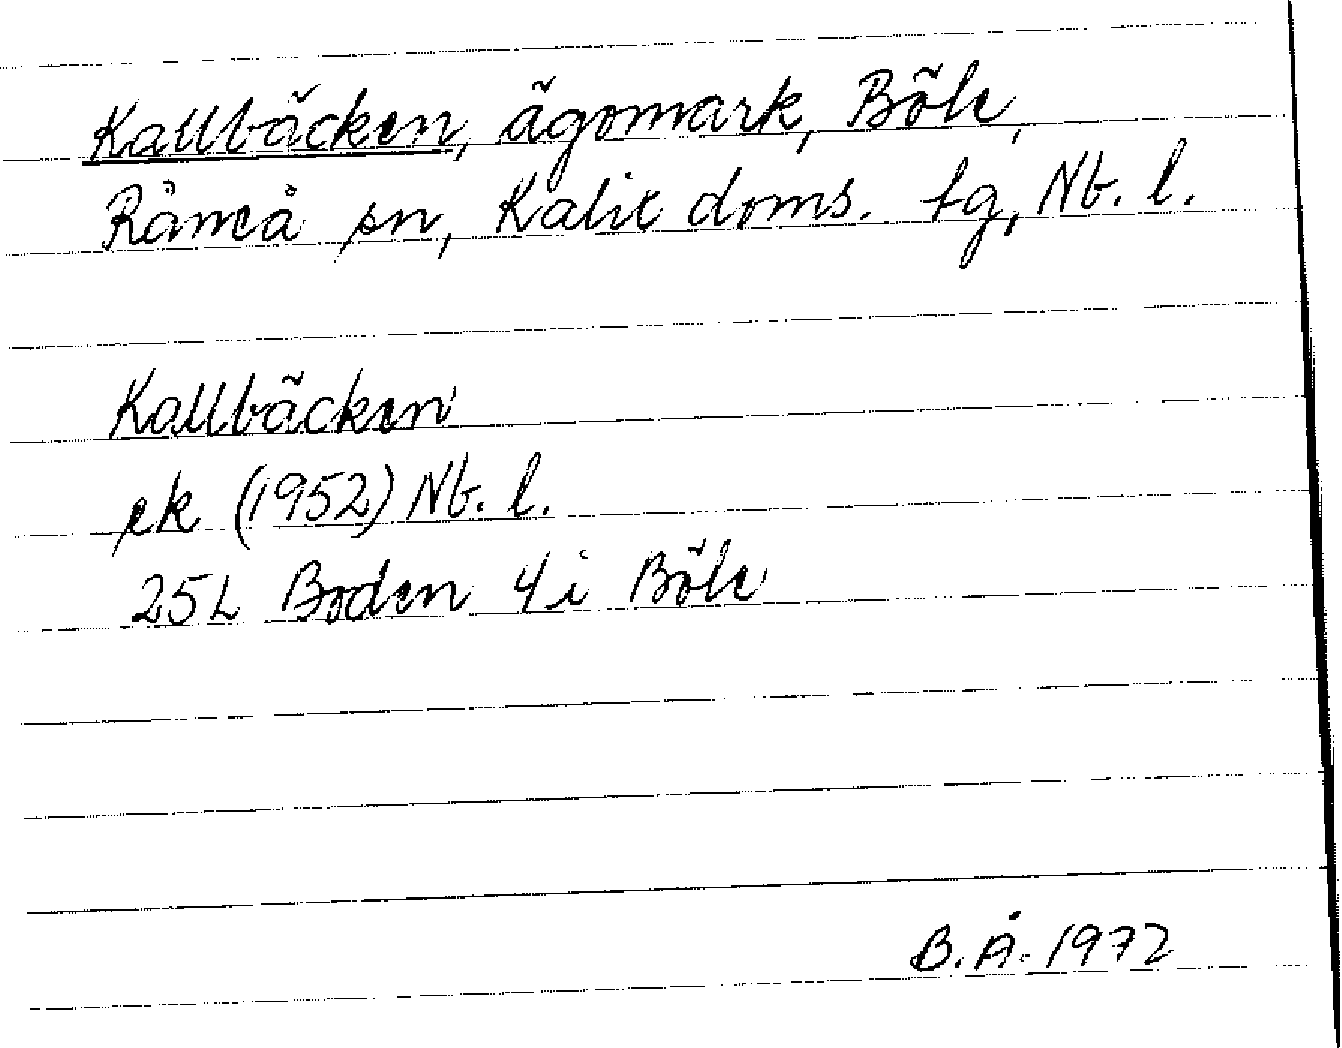 Kallbäcken, ägomark, Böle,
Råneå sn, Kalix doms. tg, Nb. l.
Kallbäcken
ek (1952) Nb. l.
25L Boden 4i Böle
B.Å. 1972